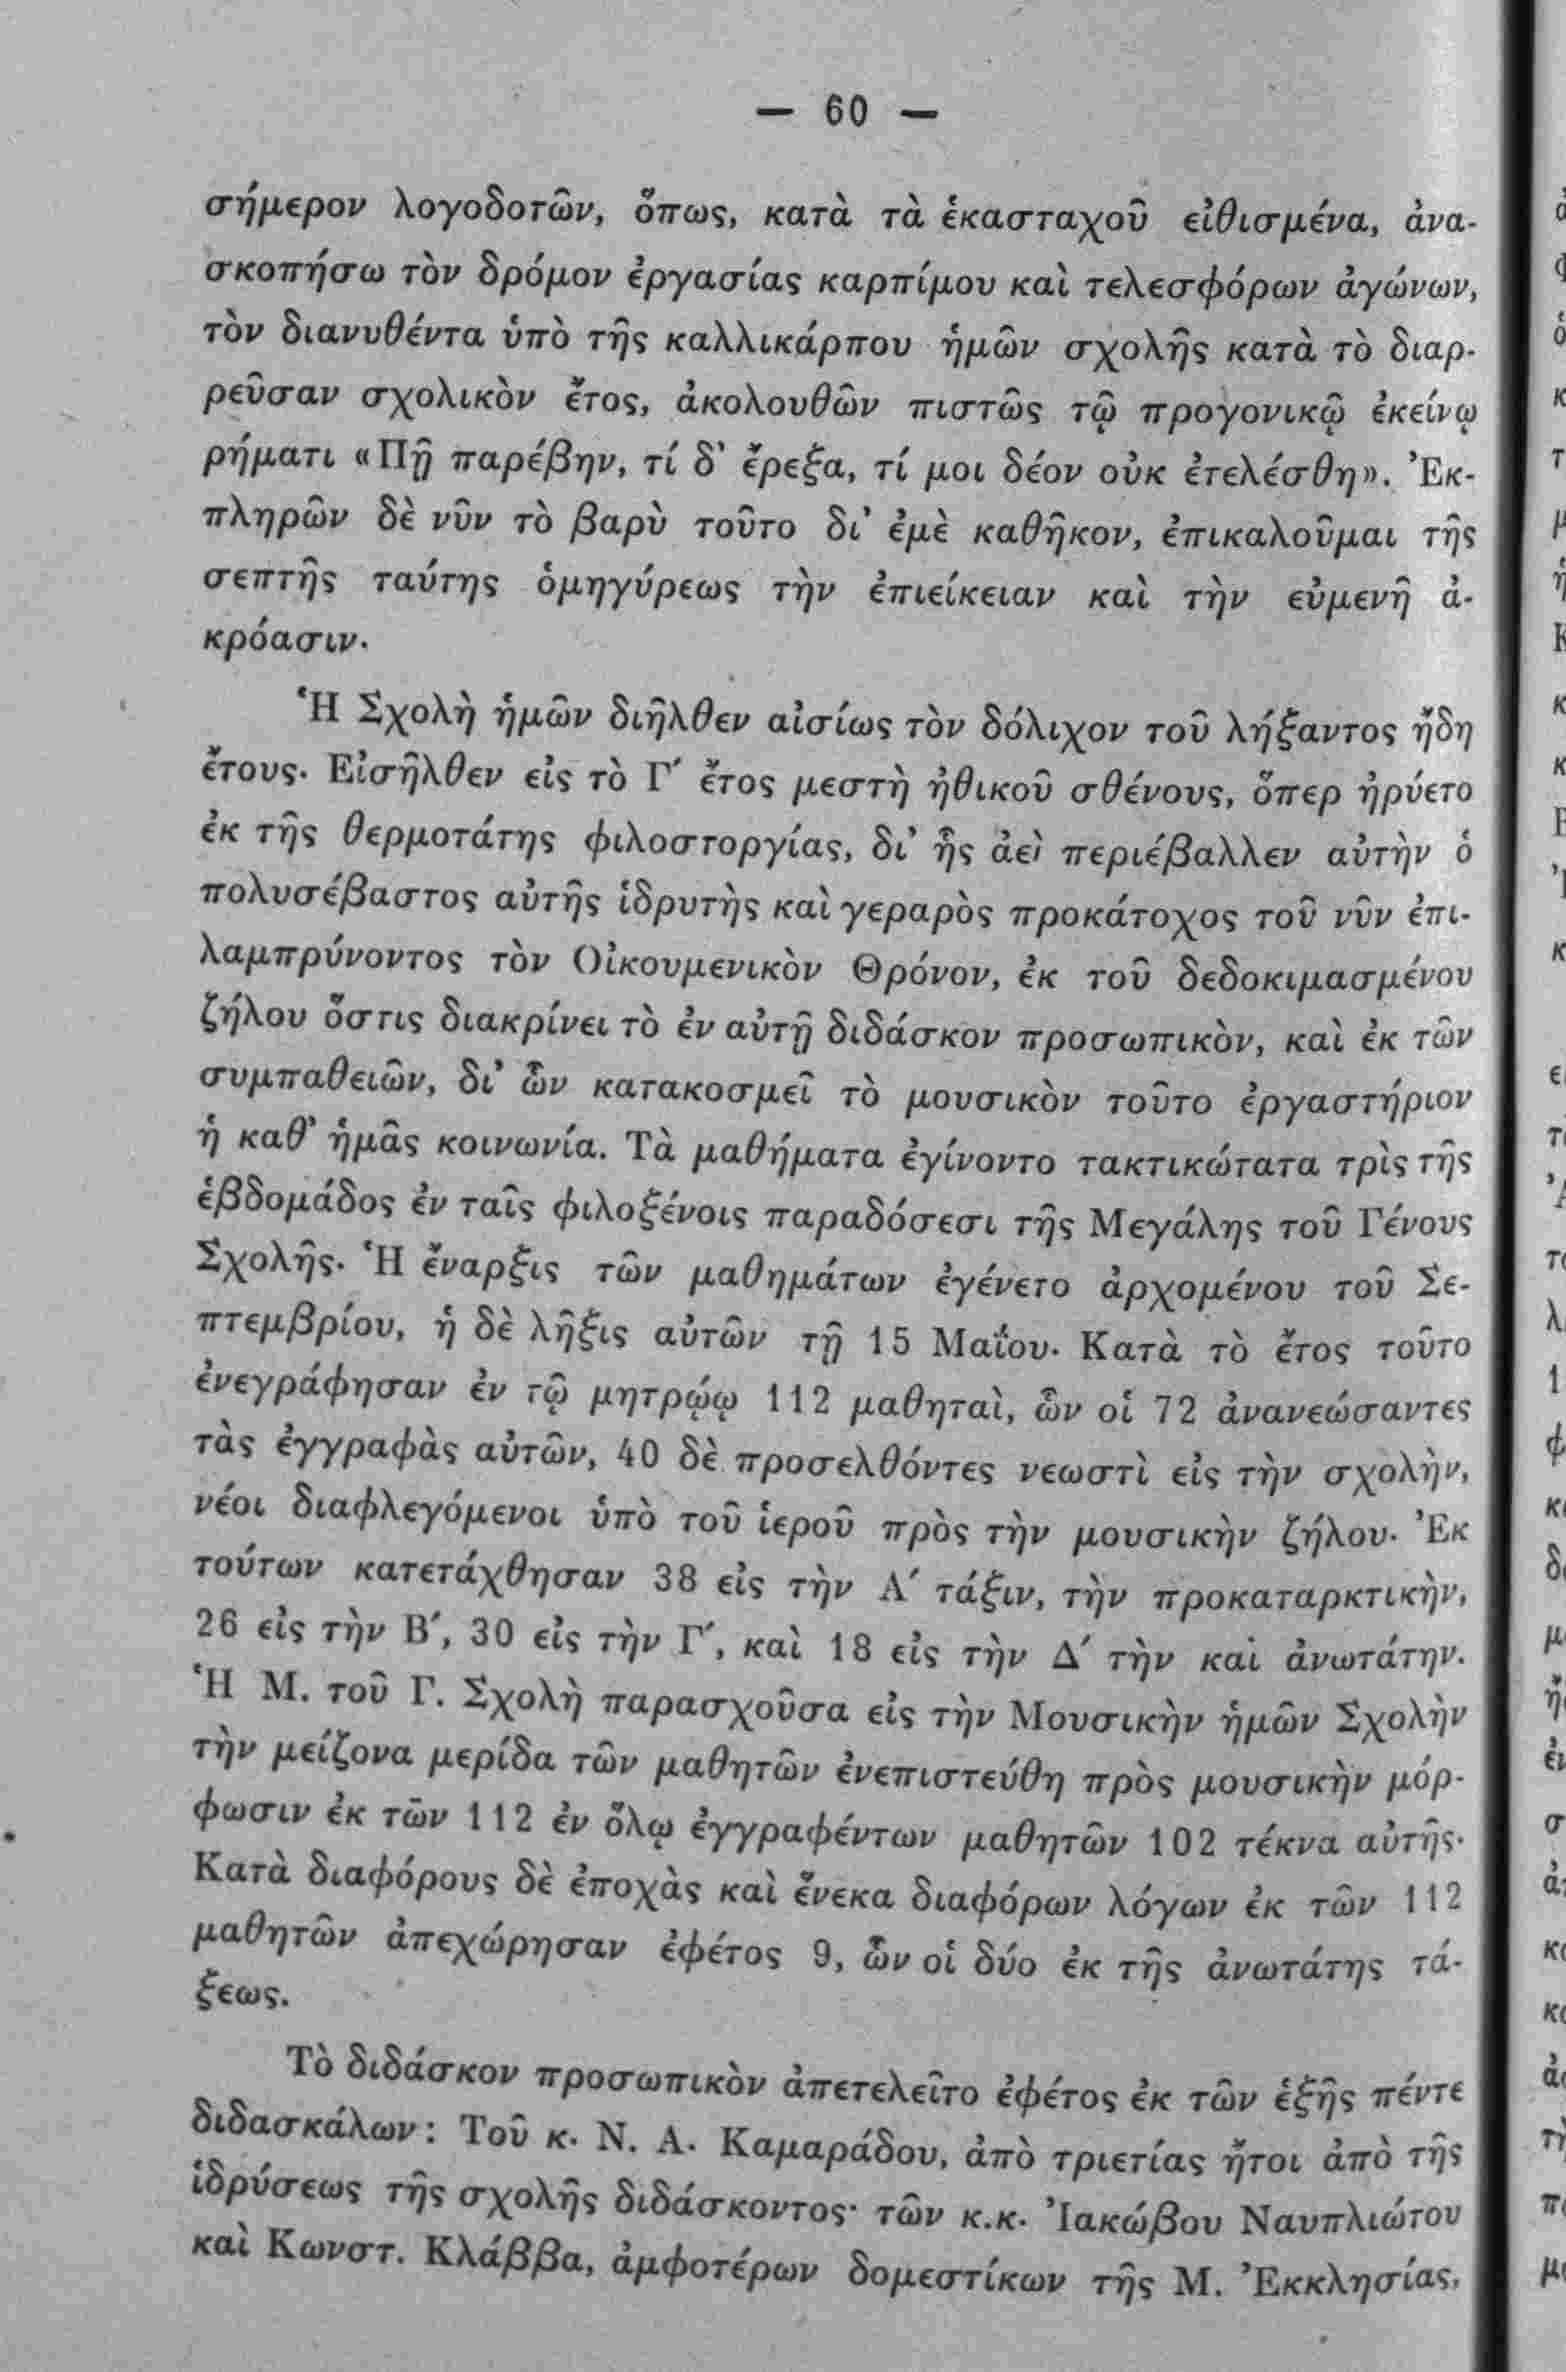 — 60 —
σήμερον λογοδοτῶν, ὅπως, κατὰ τὰ ἑκασταχοῦ εἰθισμένα, ἀνα-
σκοπήσω τὸν δρόμον ἐργασίας καρπίμου καὶ τελεσφόρων ἀγώνων,
τὸν διανυθέντα ὑπὸ τῆς καλλικάρπου ἡμῶν σχολῆς κατὰ τὸ διαρ-
ρεῦσαν σχολικὸν ἔτος, ἀκολουθῶν πιστῶς τῷ προγονικῷ ἐκείνῳ
ρήματι «Πῇ παρέβην, τί δ' ἔρεξα, τί μοι δέον οὐκ ἐτελέσθη». Ἐκ-
πληρῶν δὲ νῦν τὸ βαρὺ τοῦτο δι' ἐμὲ καθῆκον, ἐπικαλοῦμαι τῆς
σεπτῆς ταύτης ὁμηγύρεως τὴν ἐπιείκειαν καὶ τὴν εὐμενῆ ἀ-
κρόασιν.
Ἡ Σχολὴ ἡμῶν διῆλθεν αἰσίως τὸν δόλιχον τοῦ λήξαντος ἤδη
ἔτους. Εἰσῆλθεν εἰς τὸ Γ' ἔτος μεστὴ ἠθικοῦ σθένους, ὅπερ ἠρύετο
ἐκ τῆς θερμοτάτης φιλοστοργίας, δι' ἧς ἀεὶ περιέβαλλεν αὐτὴν ὁ
πολυσέβαστος αὐτῆς ἱδρυτὴς καὶ γεραρὸς προκάτοχος τοῦ νῦν ἐπι-
λαμπρύνοντος τὸν Οἰκουμενικὸν Θρόνον, ἐκ τοῦ δεδοκιμασμένου
ζήλου ὅστις διακρίνει τὸ ἐν αὐτῇ διδάσκον προσωπικὸν, καὶ ἐκ τῶν
συμπαθειῶν, δι' ὧν κατακοσμεῖ τὸ μουσικὸν τοῦτο ἐργαστήριον
ἡ καθ' ἡμᾶς κοινωνία. Τὰ μαθήματα ἐγίνοντο τακτικώτατα τρὶς τῆς
ἑβδομάδος ἐν ταῖς φιλοξένοις παραδόσεσι τῆς Μεγάλης τοῦ Γένους
Σχολῆς. Ἡ ἔναρξις τῶν μαθημάτων ἐγένετο ἀρχομένου τοῦ Σε-
πτεμβρίου, ἡ δὲ λῆξις αὐτῶν τῇ 15 Μαΐου. Κατὰ τὸ ἔτος τοῦτο
ἐνεγράφησαν ἐν τῷ μητρῴῳ 112 μαθηταὶ, ὧν οἱ 72 ἀνανεώσαντες
τὰς ἐγγραφὰς αὐτῶν, 40 δὲ προσελθόντες νεωστὶ εἰς τὴν σχολὴν,
νέοι διαφλεγόμενοι ὑπὸ τοῦ ἱεροῦ πρὸς τὴν μουσικὴν ζήλου. Ἐκ
τούτων κατετάχθησαν 38 εἰς τὴν Α' τάξιν, τὴν προκαταρκτικὴν,
26 εἰς τὴν Β', 30 εἰς τὴν Γ', καὶ 18 εἰς τὴν Δ' τὴν καὶ ἀνωτάτην.
Ἡ Μ. τοῦ Γ. Σχολὴ παρασχοῦσα εἰς τὴν Μουσικὴν ἡμῶν Σχολὴν
τὴν μείζονα μερίδα τῶν μαθητῶν ἐνεπιστεύθη πρὸς μουσικὴν μόρ-
φωσιν ἐκ τῶν 112 ἐν ὅλῳ ἐγγραφέντων μαθητῶν 102 τέκνα αὐτῆς.
Κατὰ διαφόρους δὲ ἐποχὰς καὶ ἕνεκα διαφόρων λόγων ἐκ τῶν 112
μαθητῶν ἀπεχώρησαν ἐφέτος 9, ὧν οἱ δύο ἐκ τῆς ἀνωτάτης τά-
ξεως.
Τὸ διδάσκον προσωπικὸν ἀπετελεῖτο ἐφέτος ἐκ τῶν ἑξῆς πέντε
διδασκάλων: Τοῦ κ. Ν. Α. Καμαράδου, ἀπὸ τριετίας ἤτοι ἀπὸ τῆς
ἱδρύσεως τῆς σχολῆς διδάσκοντος· τῶν κ.κ. Ἰακώβου Ναυπλιώτου
καὶ Κωνστ. Κλάββα, ἀμφοτέρων δομεστίκων τῆς Μ. Ἐκκλησίας,